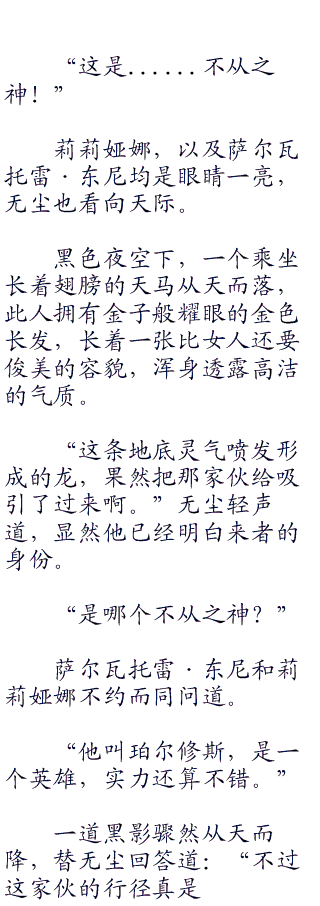 “这是......不从之
神！”
莉莉娅娜，以及萨尔瓦
托雷·东尼均是眼睛一亮，
无尘也看向天际。
黑色夜空下，一个乘坐
长着翅膀的天马从天而落，
此人拥有金子般耀眼的金色
长发，长着一张比女人还要
俊美的容貌，浑身透露高洁
的气质。
“这条地底灵气喷发形
成的龙，果然把那家伙给吸
引了过来啊。”无尘轻声
道，显然他已经明白来者的
身份。
“是哪个不从之神？”
萨尔瓦托雷·东尼和莉
莉娅娜不约而同问道。
“他叫珀尔修斯，是一
个英雄，实力还算不错。”
一道黑影骤然从天而
降，替无尘回答道：“不过
这家伙的行径真是